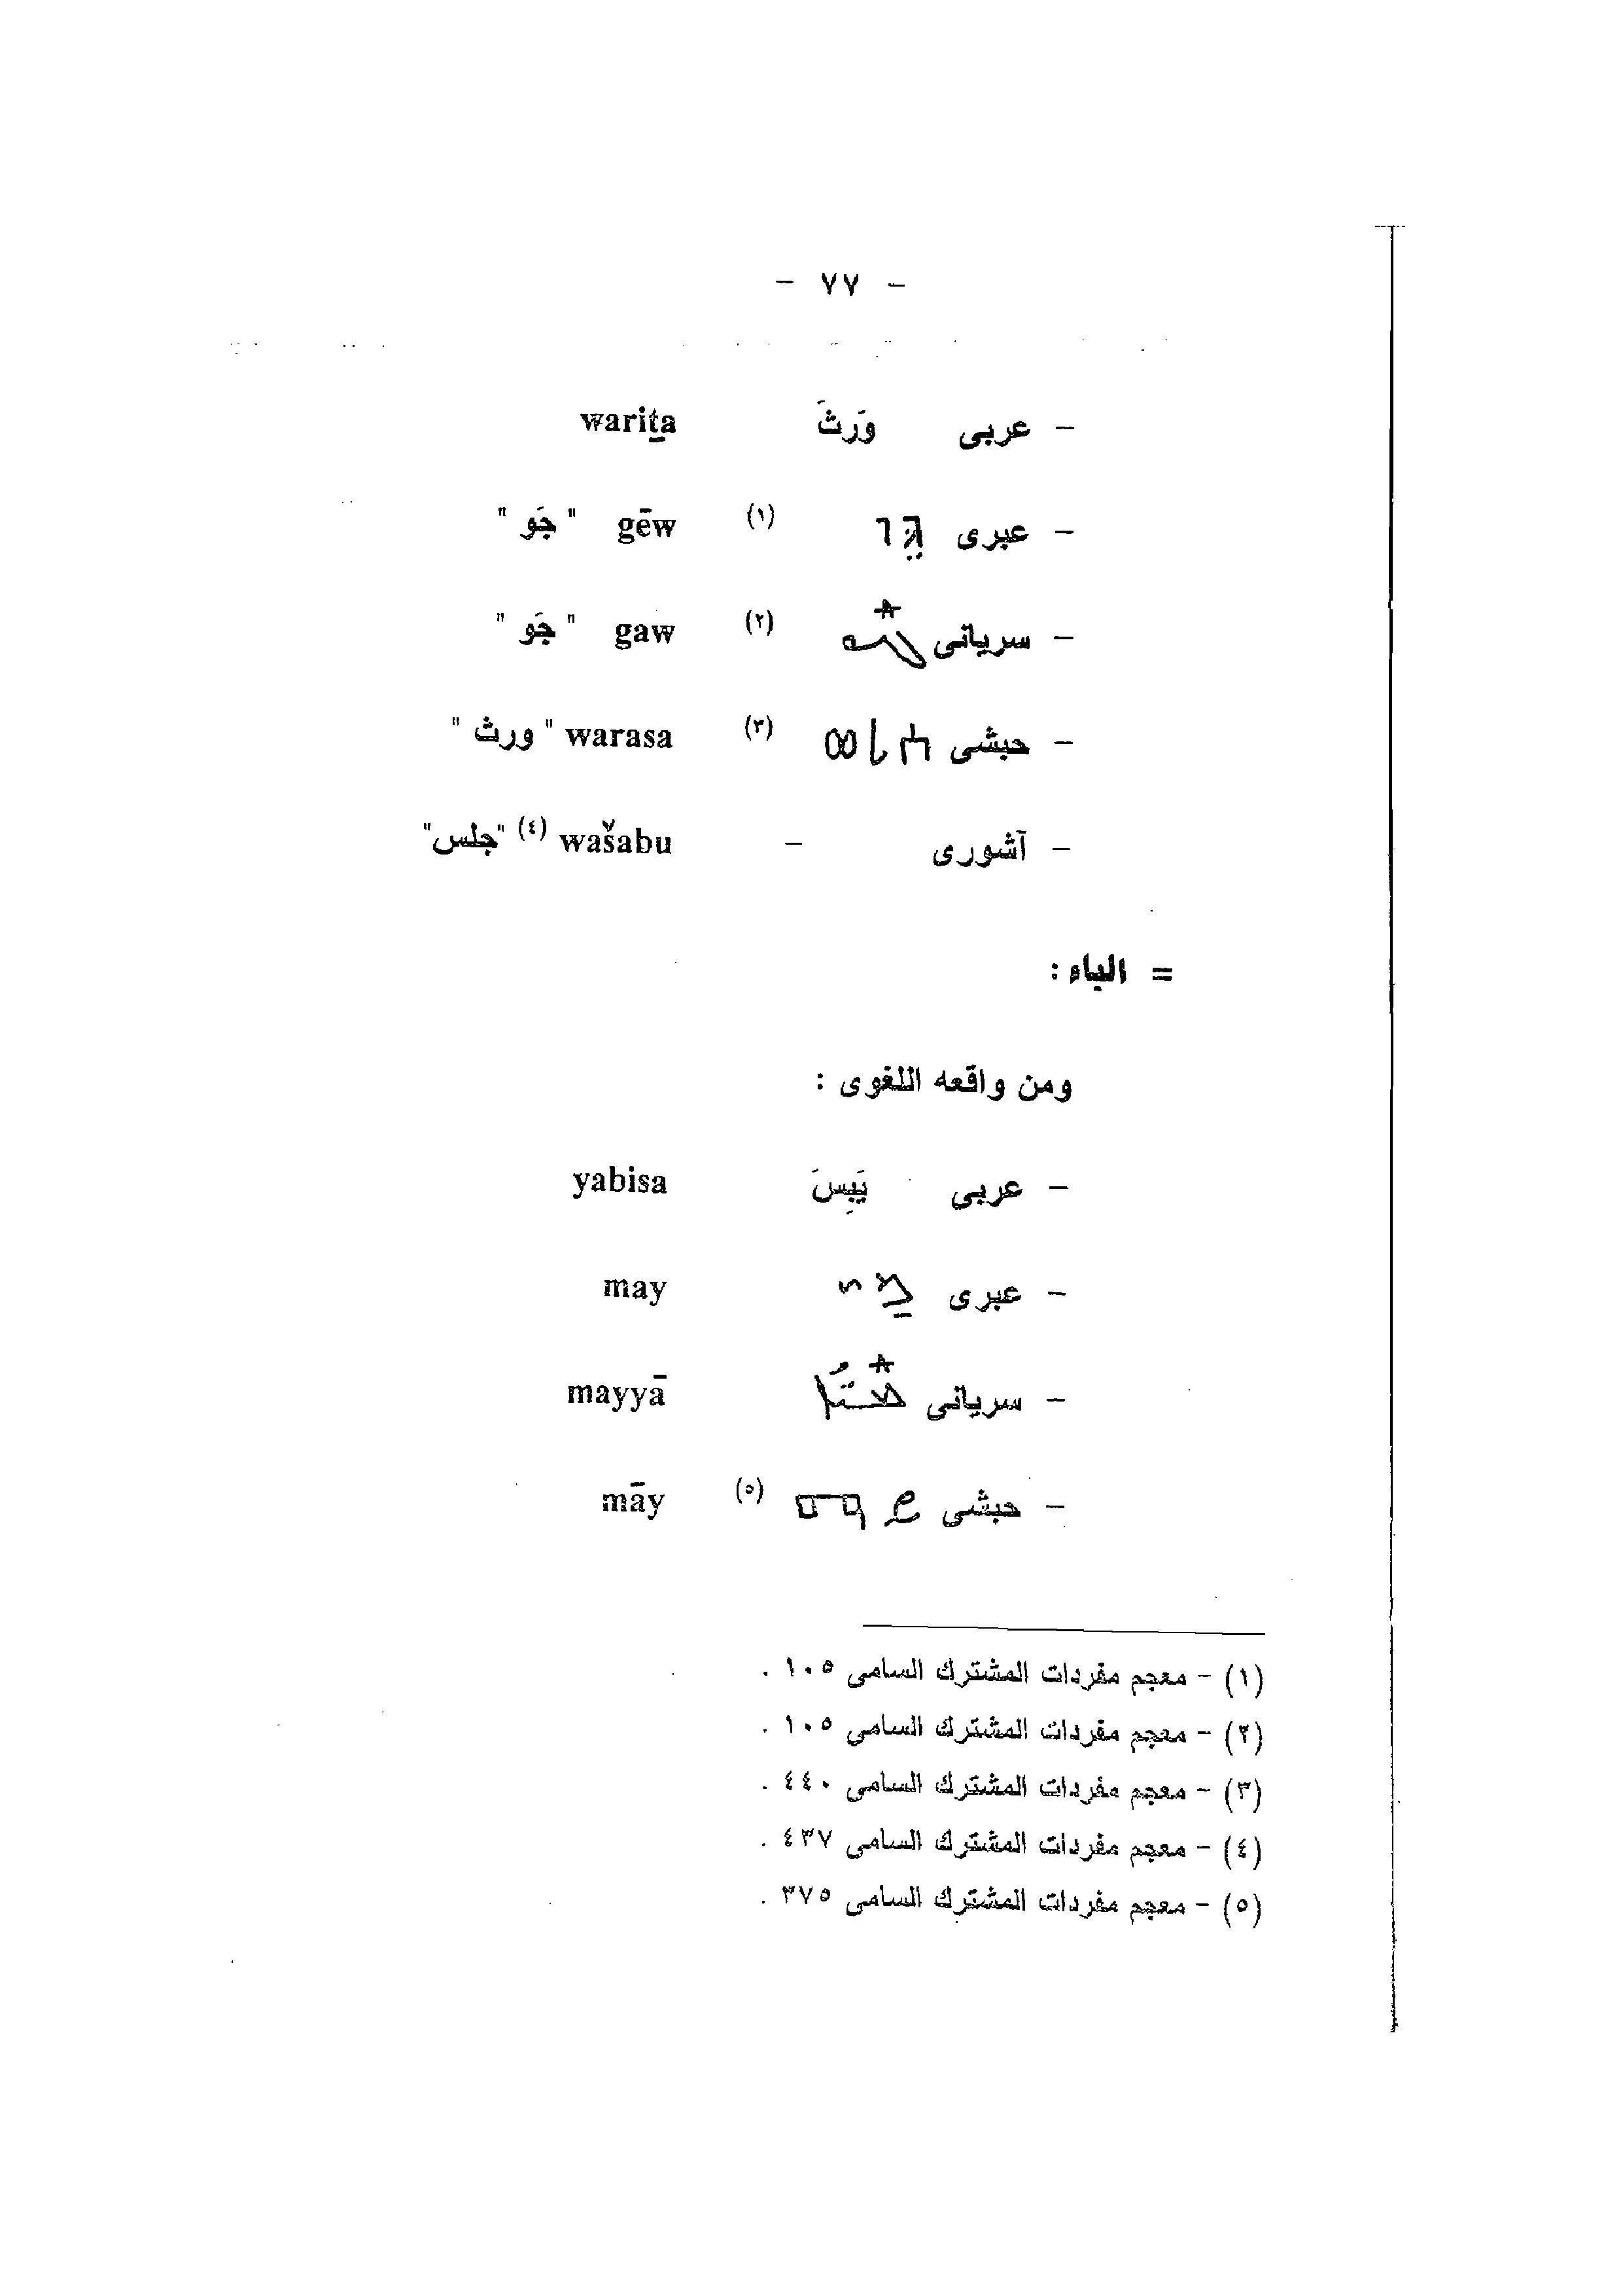 - ٧٧ -
- عربى وَرثَ wariṯa
- عبرى גֵּו (١) gēw " جَو "
- سريانى ܓܰܘ (٢) gaw " جَو "
- حبشى ወረሰ (٣) warasa " ورث "
- آشورى - wašabu (٤) "جلس"
= الياء :
ومن واقعه اللغوى :
- عربى يَبِسَ yabisa
- عبرى מַי may
- سريانى ܡܰܝܳܐ mayyā
- حبشى ማይ (٥) māy
(١) - معجم مفردات المشترك السامى ١٠٥ .
(٢) - معجم مفردات المشترك السامى ١٠٥ .
(٣) - معجم مفردات المشترك السامى ٤٤٠ .
(٤) - معجم مفردات المشترك السامى ٤٣٧ .
(٥) - معجم مفردات المشترك السامى ٣٧٥ .